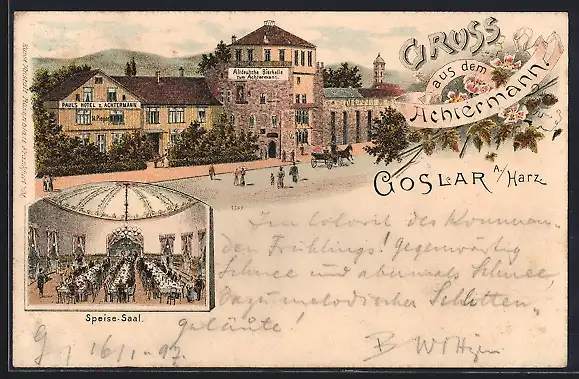 GRUSS
aus dem
Achtermann.
GOSLAR A/Harz
PAUL'S HOTEL Z. ACHTERMANN
Altdeutsche Bierhalle
zum Achtermann.
Speise-Saal.
Im Colorit des Kommen-
den Frühlings! Gegenwärtig
Schnee und abermals Schnee,
dazu melodischer Schlitten-
geläute!
G 16/1-97.